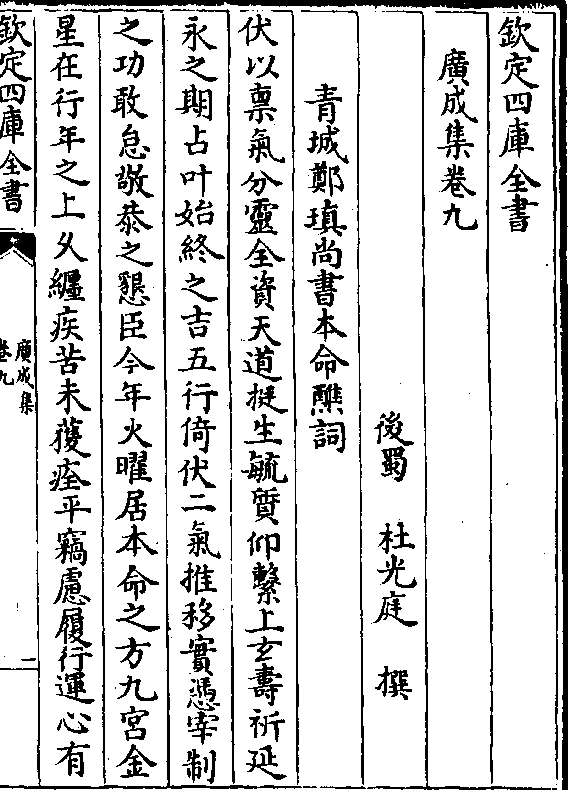 欽定四庫全書
廣成集卷九
後蜀 杜光庭 撰
青城鄭瑱尚書本命醮詞
伏以禀氣分靈全資天道挺生毓質仰繫上玄壽祈延
永之期占叶始終之吉五行倚伏二氣推移實憑宰制
之功敢怠敬恭之懇臣今年火曜居本命之方九宮金
星在行年之上久纒疾苦未獲痊平竊慮履行運心有
欽定四庫全書
廣成集
卷九
一